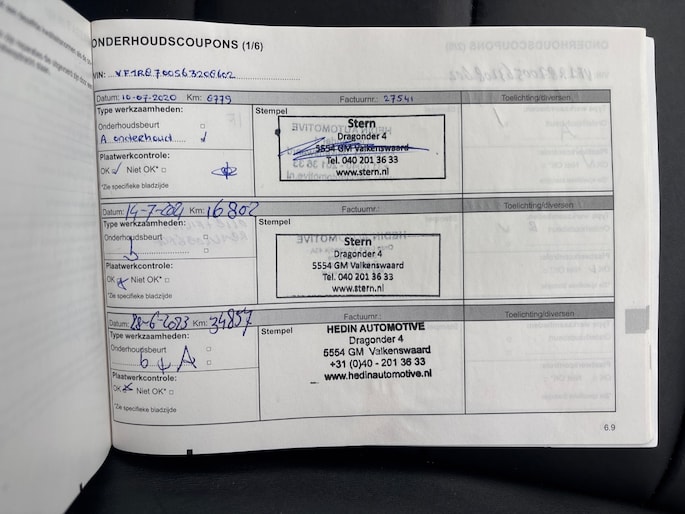 ONDERHOUDSCOUPONS (1/6)
VIN:
Datum: 10-07-2020 Km: 6779 Factuurnr.: 27541 Toelichting/diversen
Type werkzaamheden: Stempel
Onderhoudsbeurt
A onderhoud
Plaatwerkcontrole:
OK Niet OK*
*Zie specifieke bladzijde
Stern
Dragonder 4
5554 GM Valkenswaard
Tel. 040 201 36 33
www.stern.nl
Datum: 14-7-2021 Km: 16802 Factuurnr.: Toelichting/diversen
Type werkzaamheden: Stempel
Onderhoudsbeurt
Plaatwerkcontrole:
OK Niet OK*
*Zie specifieke bladzijde
Stern
Dragonder 4
5554 GM Valkenswaard
Tel. 040 201 36 33
www.stern.nl
Datum: 28-6-2023 Km: 34857 Factuurnr.: Toelichting/diversen
Type werkzaamheden: Stempel
Onderhoudsbeurt
Plaatwerkcontrole:
OK Niet OK*
*Zie specifieke bladzijde
HEDIN AUTOMOTIVE
Dragonder 4
5554 GM Valkenswaard
+31 (0)40 - 201 36 33
www.hedinautomotive.nl
6.9